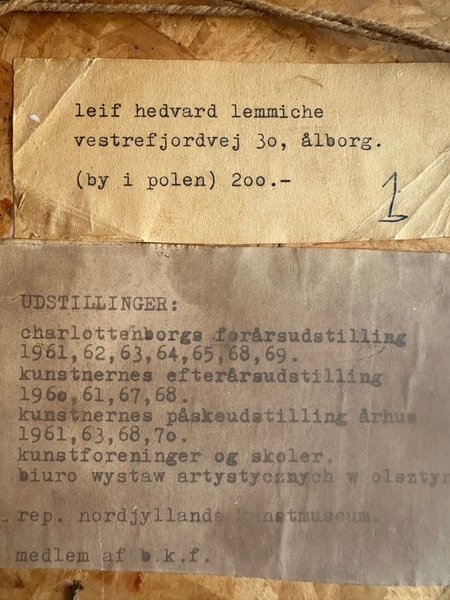 leif hedvard lemmiche
vestrefjordvej 3o, ålborg.
(by i polen) 2oo.-
1
UDSTILLINGER:
charlottenborgs forårsudstilling
1961,62,63,64,65,68,69.
kunstnernes efterårsudstilling
196o,61,67,68.
kunstnernes påskeudstilling århus
1961,63,68,7o.
kunstforeninger og skoler.
biuro wystaw artystycznych w olsztyn
rep. nordjyllands kunstmuseum.
medlem af b.k.f.